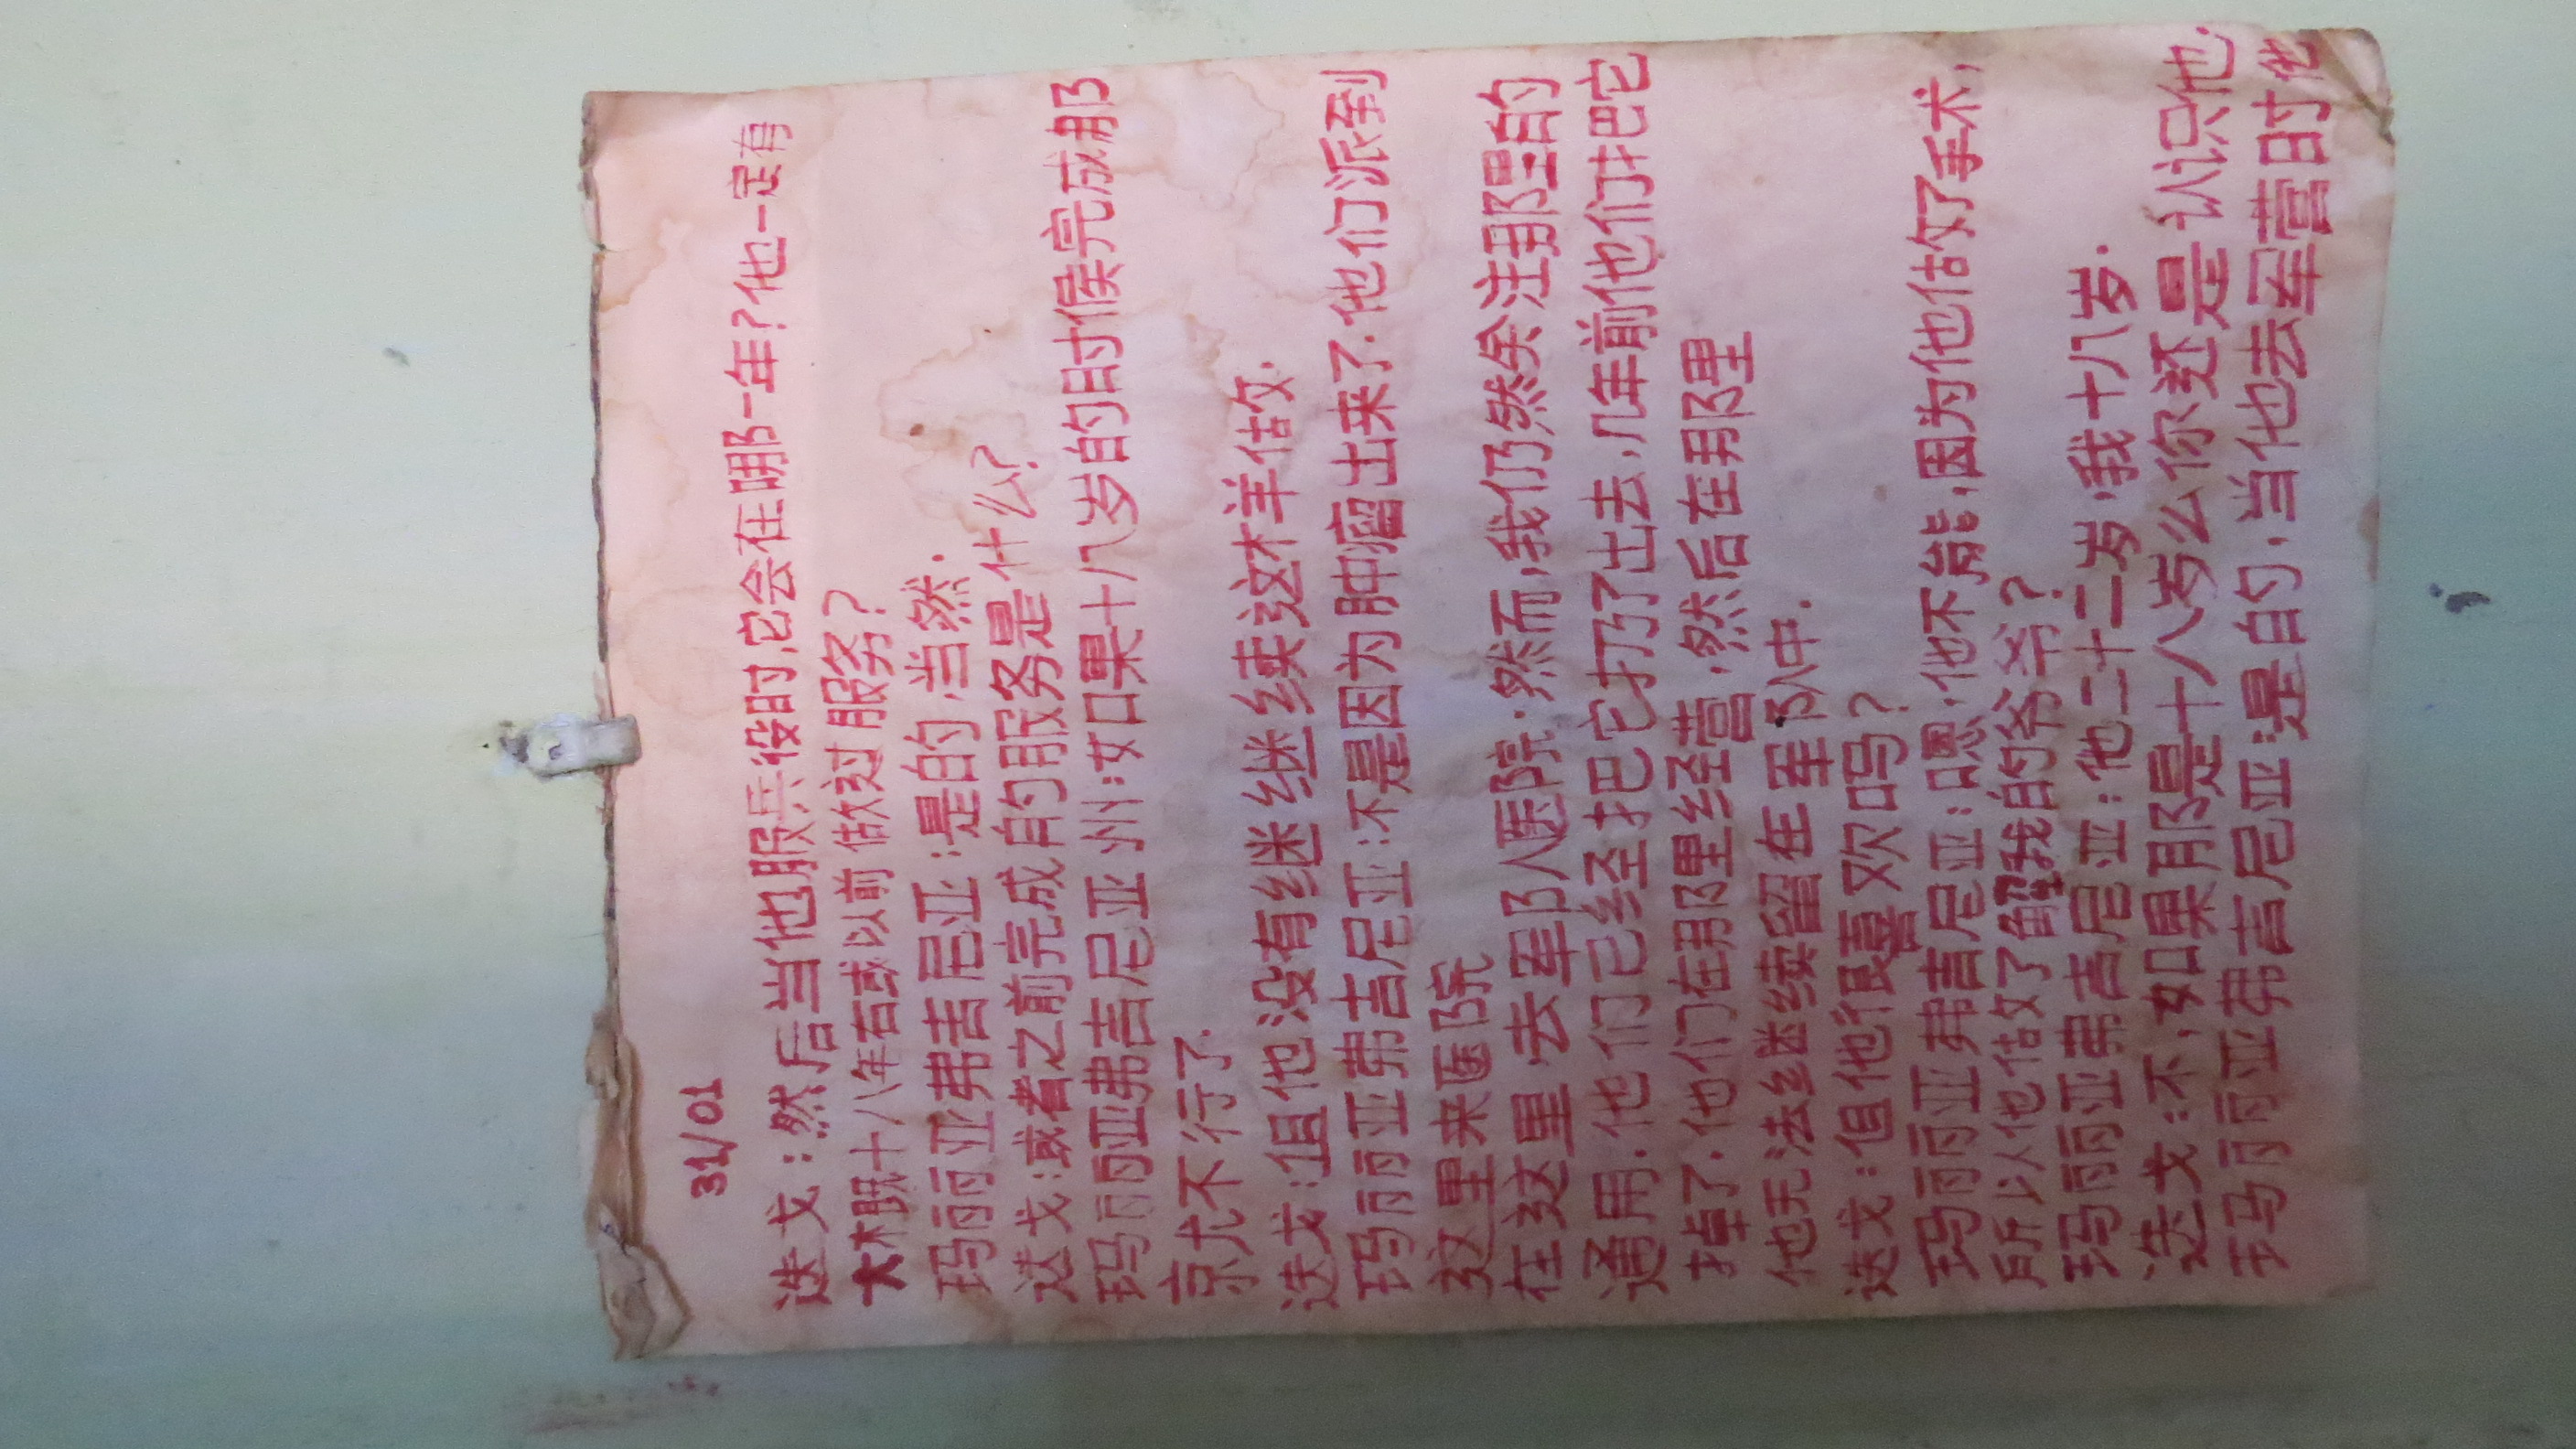 31/01
迭戈：然后当他服兵役时，它会在哪一年？他一定有
大概十八年右或以前做过服务？
玛丽亚弗吉尼亚：是的，当然．
迭戈：或者之前完成的服务是什么？
玛丽亚弗吉尼亚州：如果十八岁的时候完成那
就不行了．
迭戈：但他没有继续这样做．
玛丽亚弗吉尼亚：不是因为肿瘤出来了．他们派到
这里来医院
在这里，去军队医院．然而，我仍然关注那里的
通用．他们已经把它扔了出去，几年前他们把它
掉了．他们在那里经营，然后在那里
他无法继续留在军队中．
迭戈：但他很喜欢吗？
玛丽亚弗吉尼亚：嗯，他不能，因为他做了手术，
所以他做了解我的爷爷？
玛丽亚弗吉尼亚：他二十二岁，我十八岁．
迭戈：不，如果那是十八岁么你还是认识他．
玛丽亚弗吉尼亚：是的，当他去军营时他